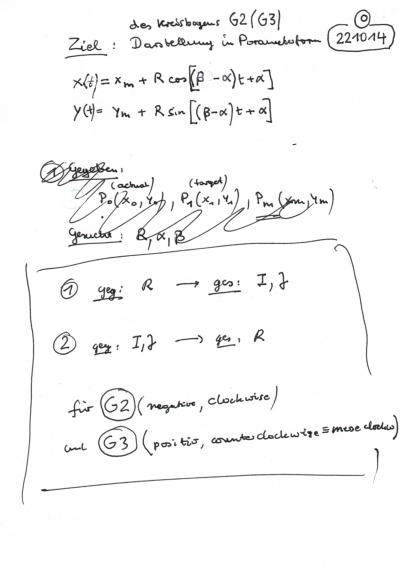 des Kreisbogens G2 (G3)
Ziel : Darstellung in Parameterform
0
221014
x(t) = xm + R cos[(β - α)t + α]
y(t) = ym + R sin[(β-α)t + α]
① Gegeben:
(actual) (target)
P0(x0, y0), P1(x1, y1), Pm(xm, ym)
Gesucht: R, α, β
① geg: R → ges: I, J
② geg: I, J → ges. R
für G2 (negative, clockwise)
und G3 (positiv, counterclockwise ≡